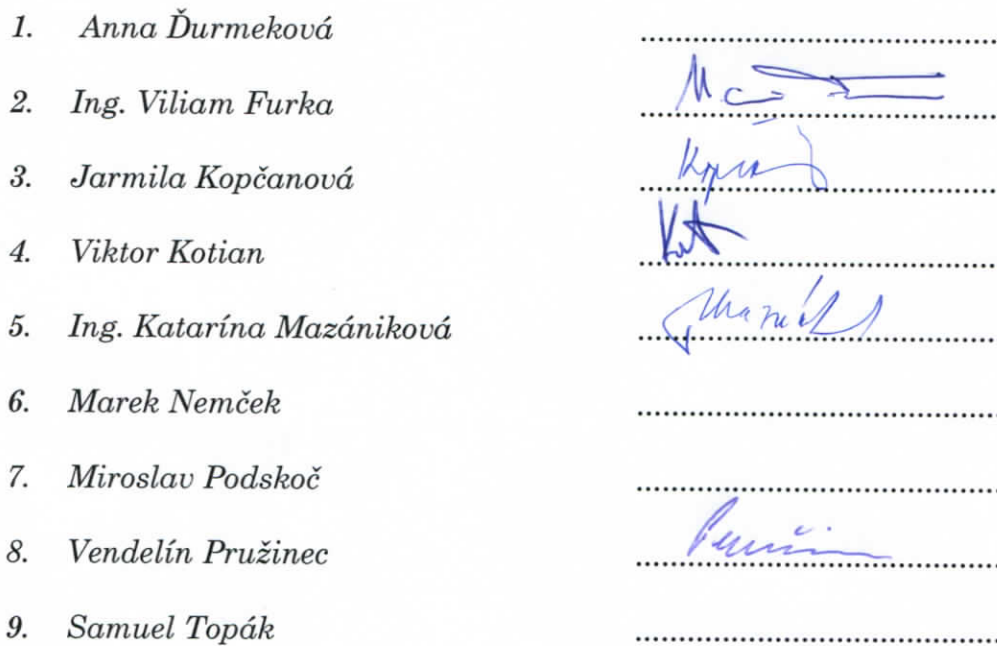 1. Anna Ďurmeková
2. Ing. Viliam Furka
3. Jarmila Kopčanová
4. Viktor Kotian
5. Ing. Katarína Mazániková
6. Marek Nemček
7. Miroslav Podskoč
8. Vendelín Pružinec
9. Samuel Topák